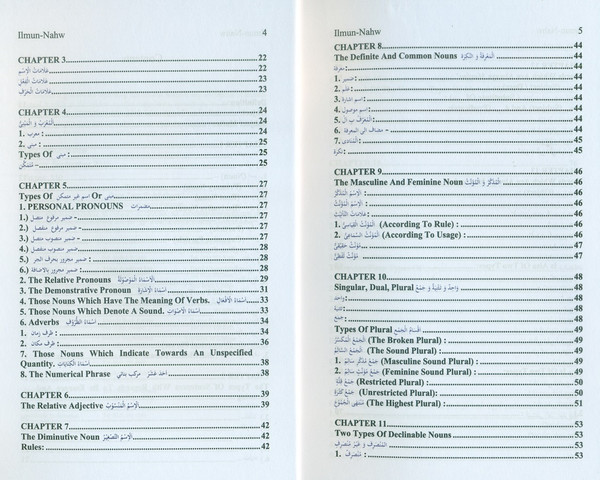 Ilmun-Nahw 4
CHAPTER 3 22
عَلَامَاتُ الْاِسْمِ 22
عَلَامَاتُ الْفِعْلِ 23
عَلَامَاتُ الْحَرْفِ 23
CHAPTER 4 24
الْمُعْرَبُ وَ الْمَبْنِيُّ 24
1. معرب : 24
2. مبنى : 25
Types Of مبنى : 25
مُتَمَكِّن- 25
CHAPTER 5 27
Types Of اسم غير متمكن Or مبنى 27
1. PERSONAL PRONOUNS مضمرات 27
1.) ضمير مرفوع متصل - 27
2.) ضمير مرفوع منفصل - 27
3.) ضمير منصوب متصل - 27
4.) ضمير منصوب منفصل - 28
5.) ضمير مجرور بحرف الجر : 28
6.) ضمير مجرور بالاضافة : 28
2. The Relative Pronouns الْاَسْمَاءُ الْمَوْصُوْلَةُ 29
3. The Demonstrative Pronoun اَسْمَاءُ الْاِشَارَةِ 31
4. Those Nouns Which Have The Meaning Of Verbs. اَسْمَاءُ الْاَفْعَالِ 33
5. Those Nouns Which Denote A Sound. اَسْمَاءُ الْاَصْوَاتِ 34
6. Adverbs اَسْمَاءُ الظُّرُوْفِ 34
1. ظرف زمان : 34
2. ظرف مكان : 36
7. Those Nouns Which Indicate Towards An Unspecified
Quantity. اَسْمَاءُ الْكِنَايَاتِ 38
8. The Numerical Phrase مركب بنائي 38
CHAPTER 6 39
The Relative Adjective اَلْاِسْمُ الْمَنْسُوْبُ 39
CHAPTER 7 42
The Diminutive Noun اَلْاِسْمُ التَّصْغِيْرُ 42
Rules: 42
Ilmun-Nahw 5
CHAPTER 8 44
The Definite And Common Nouns الْمَعْرِفَةُ وَ النَّكِرَةُ 44
معرفة: 44
1. ضمير : 44
2. علم : 44
3. اسم اشارة : 44
4. اسم موصول : 44
5. الْمُعَرَّفُ بِ ال : 44
6. مضاف الى المعرفة - 44
7. الْمُنَادٰى : 45
نكرة: 45
CHAPTER 9 46
The Masculine And Feminine Noun الْمُذَكَّرُ وَ الْمُؤَنَّثُ 46
الْاِسْمُ الْمُذَكَّرُ : 46
الْاِسْمُ الْمُؤَنَّثُ : 46
عَلَامَاتُ التَّأْنِيْثِ : 46
1. الْمُؤَنَّثُ الْقِيَاسِيُّ (According To Rule) : 46
2. الْمُؤَنَّثُ السَّمَاعِيُّ (According To Usage) : 46
مُؤَنَّث حَقِيْقِيّ 47
مُؤَنَّث لَفْظِيّ 47
CHAPTER 10 48
Singular, Dual, Plural وَاحِدٌ وَ تَثْنِيَةٌ وَ جَمْعٌ 48
واحد: 48
تثنية: 48
جمع: 48
Types Of Plural اَقْسَامُ الْجَمْعِ 49
الْجَمْعُ الْمُكَسَّرُ (The Broken Plural) : 49
الْجَمْعُ السَّالِمُ (The Sound Plural) : 49
1. جَمْعُ مُذَكَّرٍ سَالِم (Masculine Sound Plural) : 49
2. جَمْعُ مُؤَنَّثٍ سَالِم (Feminine Sound Plural) : 49
جَمْعُ قِلَّةٍ (Restricted Plural) : 50
جَمْعُ كَثْرَةٍ (Unrestricted Plural): 50
مُنْتَهَى الْجُمُوْعِ (The Highest Plural) : 51
CHAPTER 11 53
Two Types Of Declinable Nouns 53
المُنْصَرِف وَ غَيْرُ مُنْصَرِف 53
1. مُنْصَرِف : 53